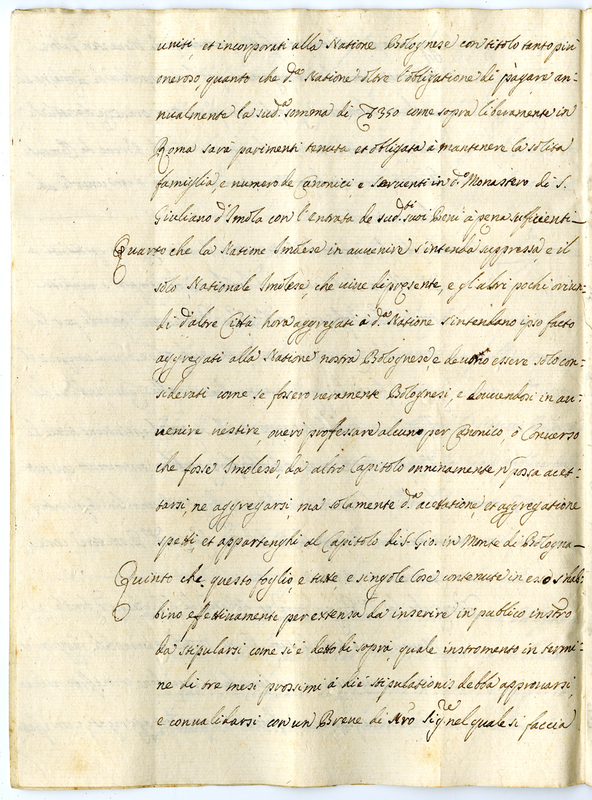 uniti, et incorporati alla Natione Bolognese con titolo tanto più
oneroso quanto che d.ª Natione oltre l'obligatione di pagare an-
nualmente la sud.ª somma di 350 come sopra liberamente in
Roma sarà parimenti tenuta et obligata à mantenere la solita
famiglia e numero de Canonici e serventi in d.º Monastero di S.
Giuliano d'Imola con l'entrata de sud.ti suoi Beni à pena sufficienti–
Quarto che la Natione Imolese in avvenire s'intenda suppressa, e il
solo Nationale Imolese, che vive di presente, e gl'altri pochi oriun-
di d'altre Città hora aggregati à d.ª Natione s'intendano ipso facto
aggregati alla Natione nostra Bolognese, e devono essere solo con:
siderati come se fossero veramente Bolognesi, e dovendosi in au-
venire vestire, overo professare alcuno per Canonico, ò Converso
che fosse Imolese, da altro Capitolo onninamente ñ possa acet-
tarsi, ne aggregarsi, ma solamente d.ª acetatione, et aggregatione
spetti, et appartenghi al Capitolo di S. Gio. in Monte di Bologna–
Quinto che questo foglio, e tutte e singole cose contenute in esso s'hab:
bino effettivamente per extensa da inserire in publico instro
da stipularsi come si è detto di sopra, quale instromento in termi-
ne di tre mesi prossimi à die stipulationis debba approvarsi,
e convalidarsi con un Breve di Nro Sig.re nel quale si faccia